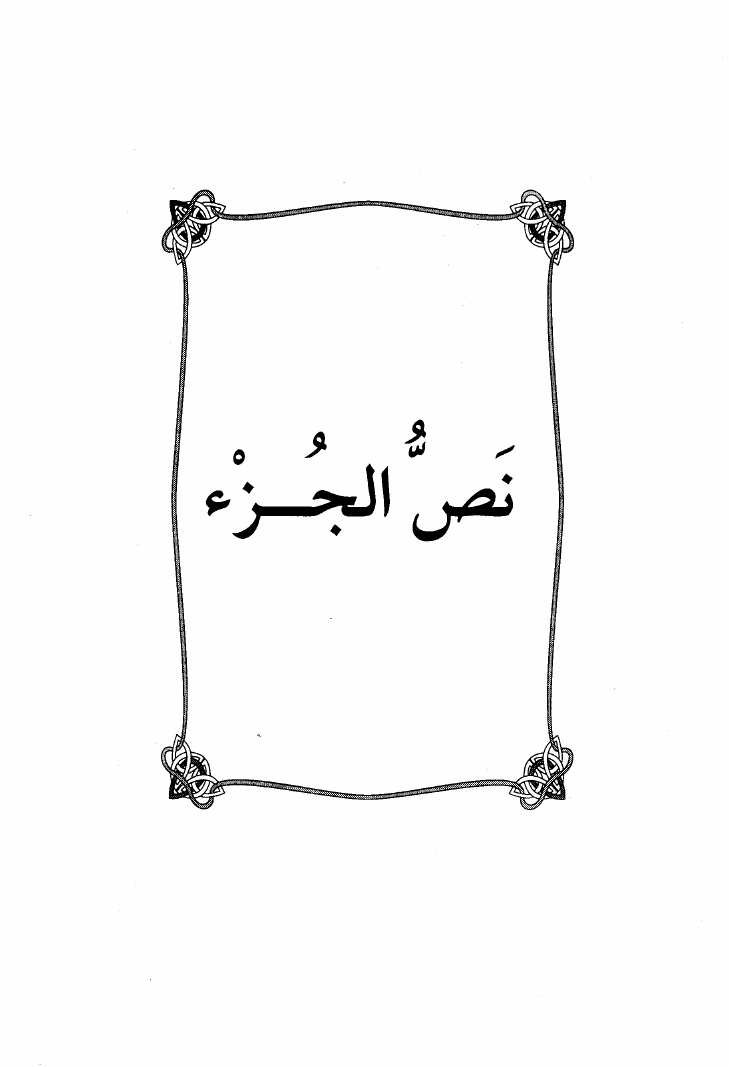 نَصُّ الجُـــزْء